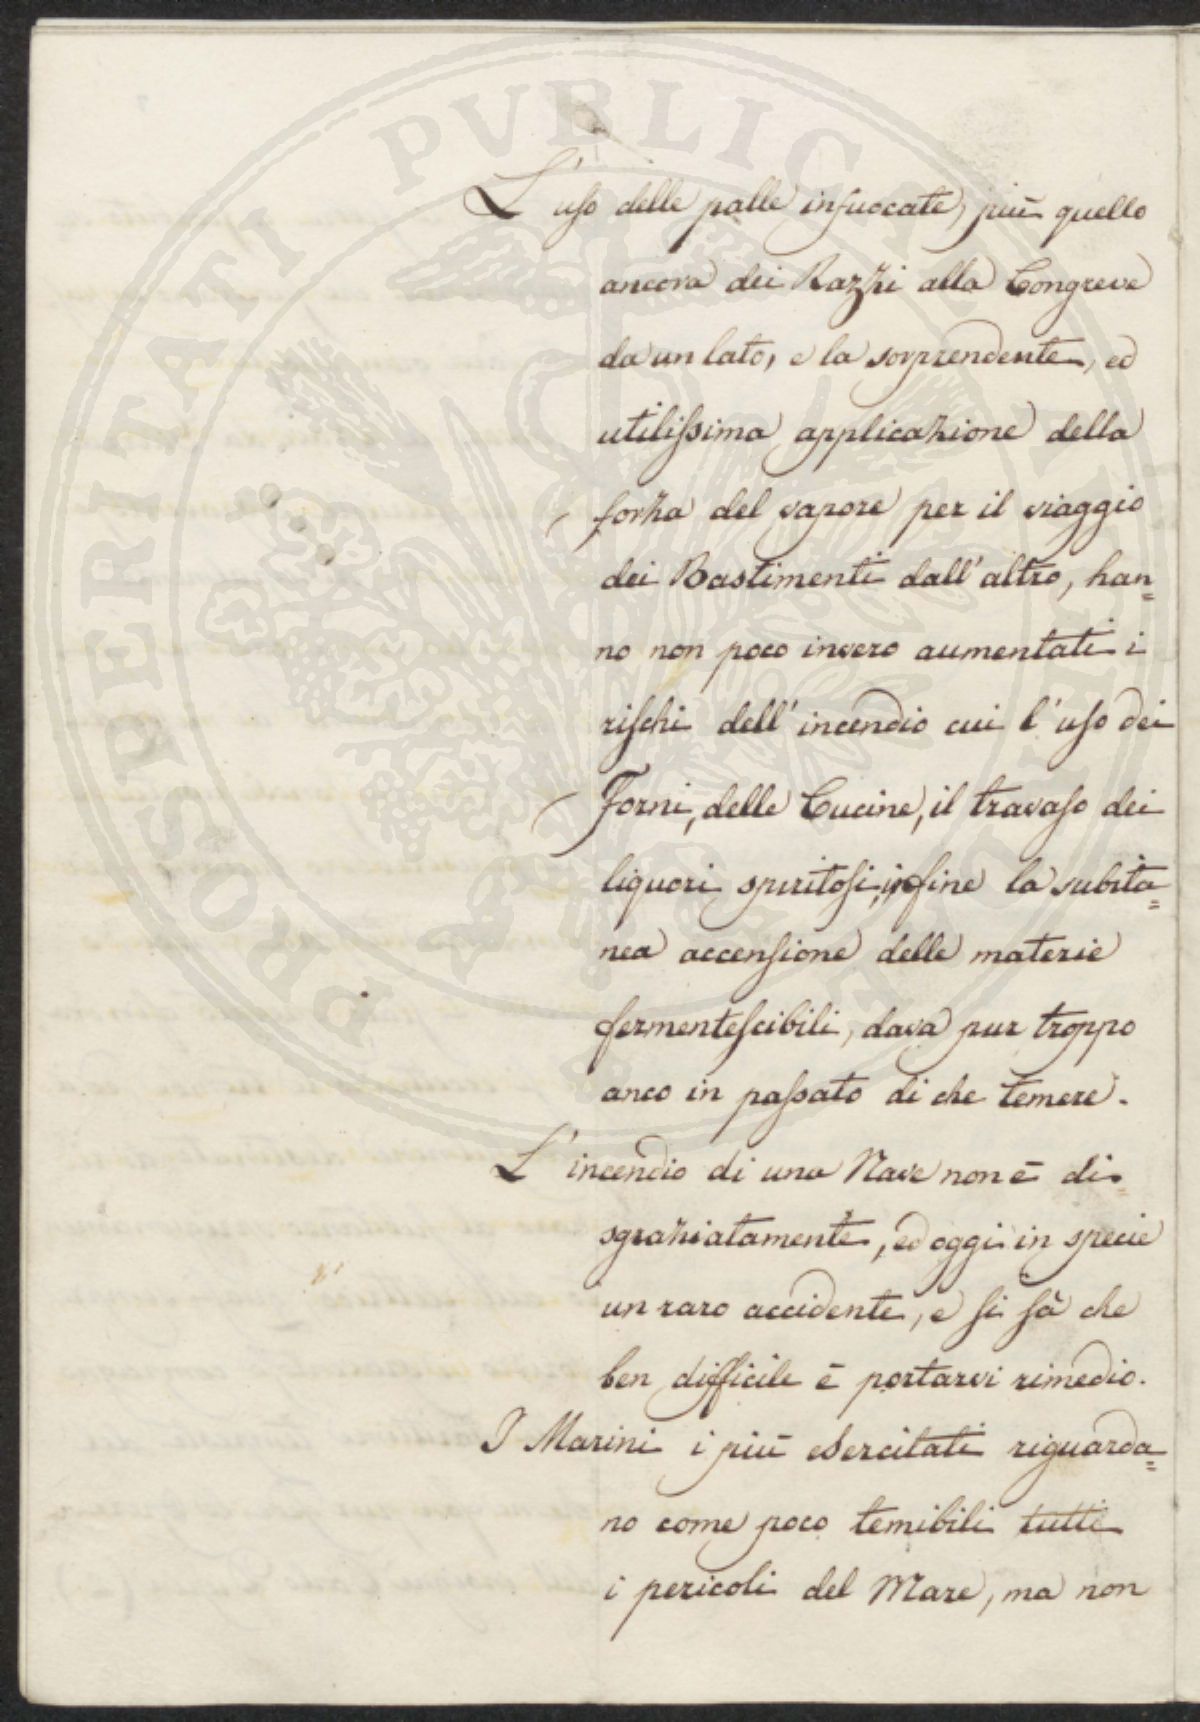 L'uso delle palle infuocate, più quello
ancora dei Razzi alla Congreve
da un lato, e la sorprendente, ed
utilissima applicazione della
forza del vapore per il viaggio
dei Bastimenti dall'altro, han=
no non poco invero aumentati i
rischi dell'incendio cui l'uso dei
Forni, delle Cucine, il travaso dei
liquori spiritosi, infine la subita=
nea accensione delle materie
fermentescibili, dava pur troppo
anco in passato di che temere.
L'incendio di una Nave non è di=
sgraziatamente, ed oggi in specie
un raro accidente, e si sà che
ben difficile è portarvi rimedio.
I Marini i più esercitati riguarda=
no come poco temibili tutti
i pericoli del Mare, ma non
PROSPERITATI PUBLICAE